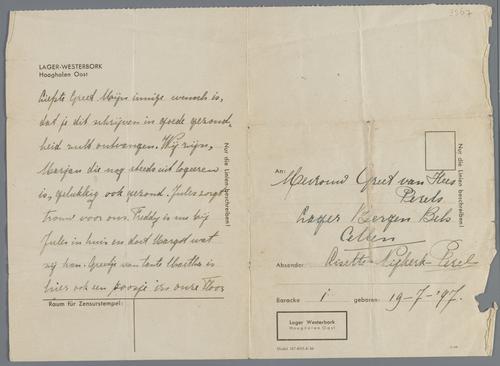 3967
LAGER-WESTERBORK
Hooghalen Oost
Liefste Greet Mijn innige wensch is,
dat je dit schrijven in goede gezond-
heid zult ontvangen. Wij zijn,
Marjan die nog steeds uit logeeren
is, gelukkig ook gezond. Jules zorgt
trouw voor ons. Freddy is nu bij
Jules in huis en doet Margot wat
zij kan. Greetje van tante Martha is
hier ook een poosje
Raum für Zensurstempel:
Nur die Linien beschreiben!
An:
Mevrouw Greet van Hes
Perels
Lager Bergen Bels
Cellen
Absender:
Lisette Nijkerk Perel
Baracke 1 geboren: 19-7-'97.
Nur die Linien beschreiben!
Lager Westerbork
Hooghalen Oost